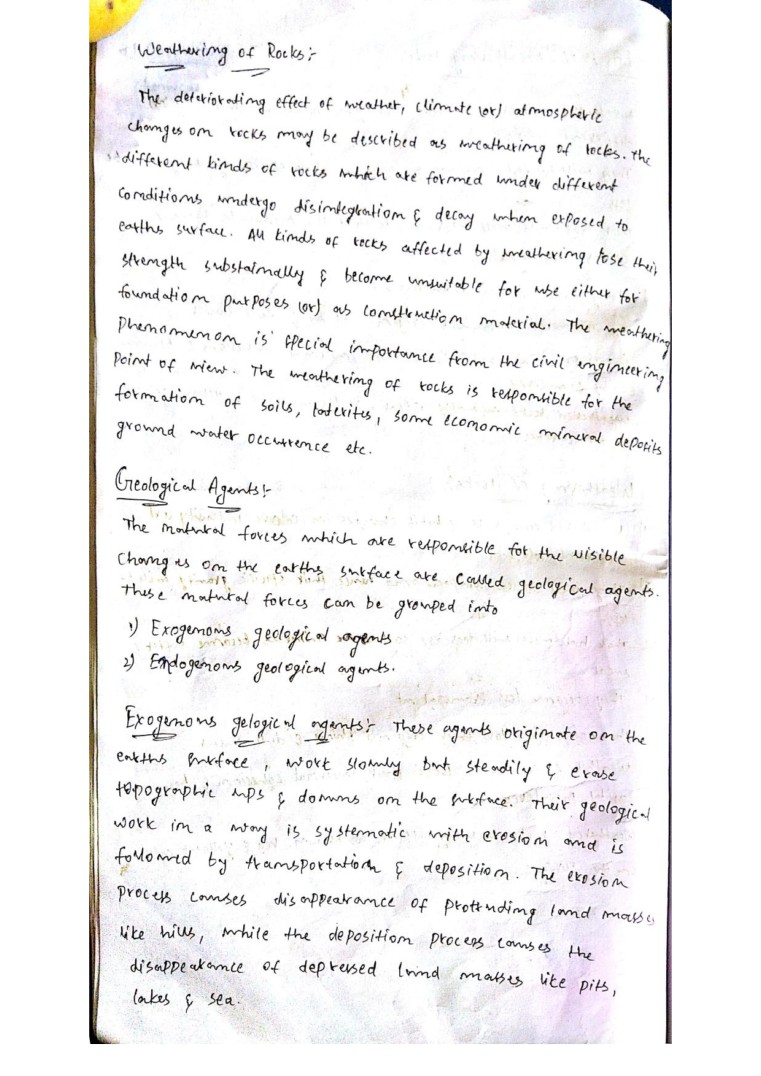 Weathering of Rocks:-
The deteriorating effect of weather, climate (or) atmospheric
changes on rocks may be described as weathering of rocks. The
different kinds of rocks which are formed under different
conditions undergo disintegration & decay when exposed to
earths surface. All kinds of rocks affected by weathering lose their
strength substainally & become unsuitable for use either for
foundation purposes (or) as construction material. The weathering
phenomenon is special importance from the civil engineering
point of view. The weathering of rocks is responsible for the
formation of soils, laterites, some economic mineral deposits
ground water occurrence etc.
Geological Agents:-
The natural forces which are responsible for the visible
changes on the earths surface are called geological agents.
These natural forces can be grouped into
1) Exogenous geological agents
2) Endogenous geological agents.
Exogenous gelogical agents:- These agents originate on the
earths surface, work slowly but steadily & erase
topographic ups & downs on the surface. Their geological
work in a way is systematic with erosion and is
followed by transportation & deposition. The erosion
process causes disappearance of protruding land masses
like hills, while the deposition process causes the
disappearance of depressed land masses like pits,
lakes & sea.